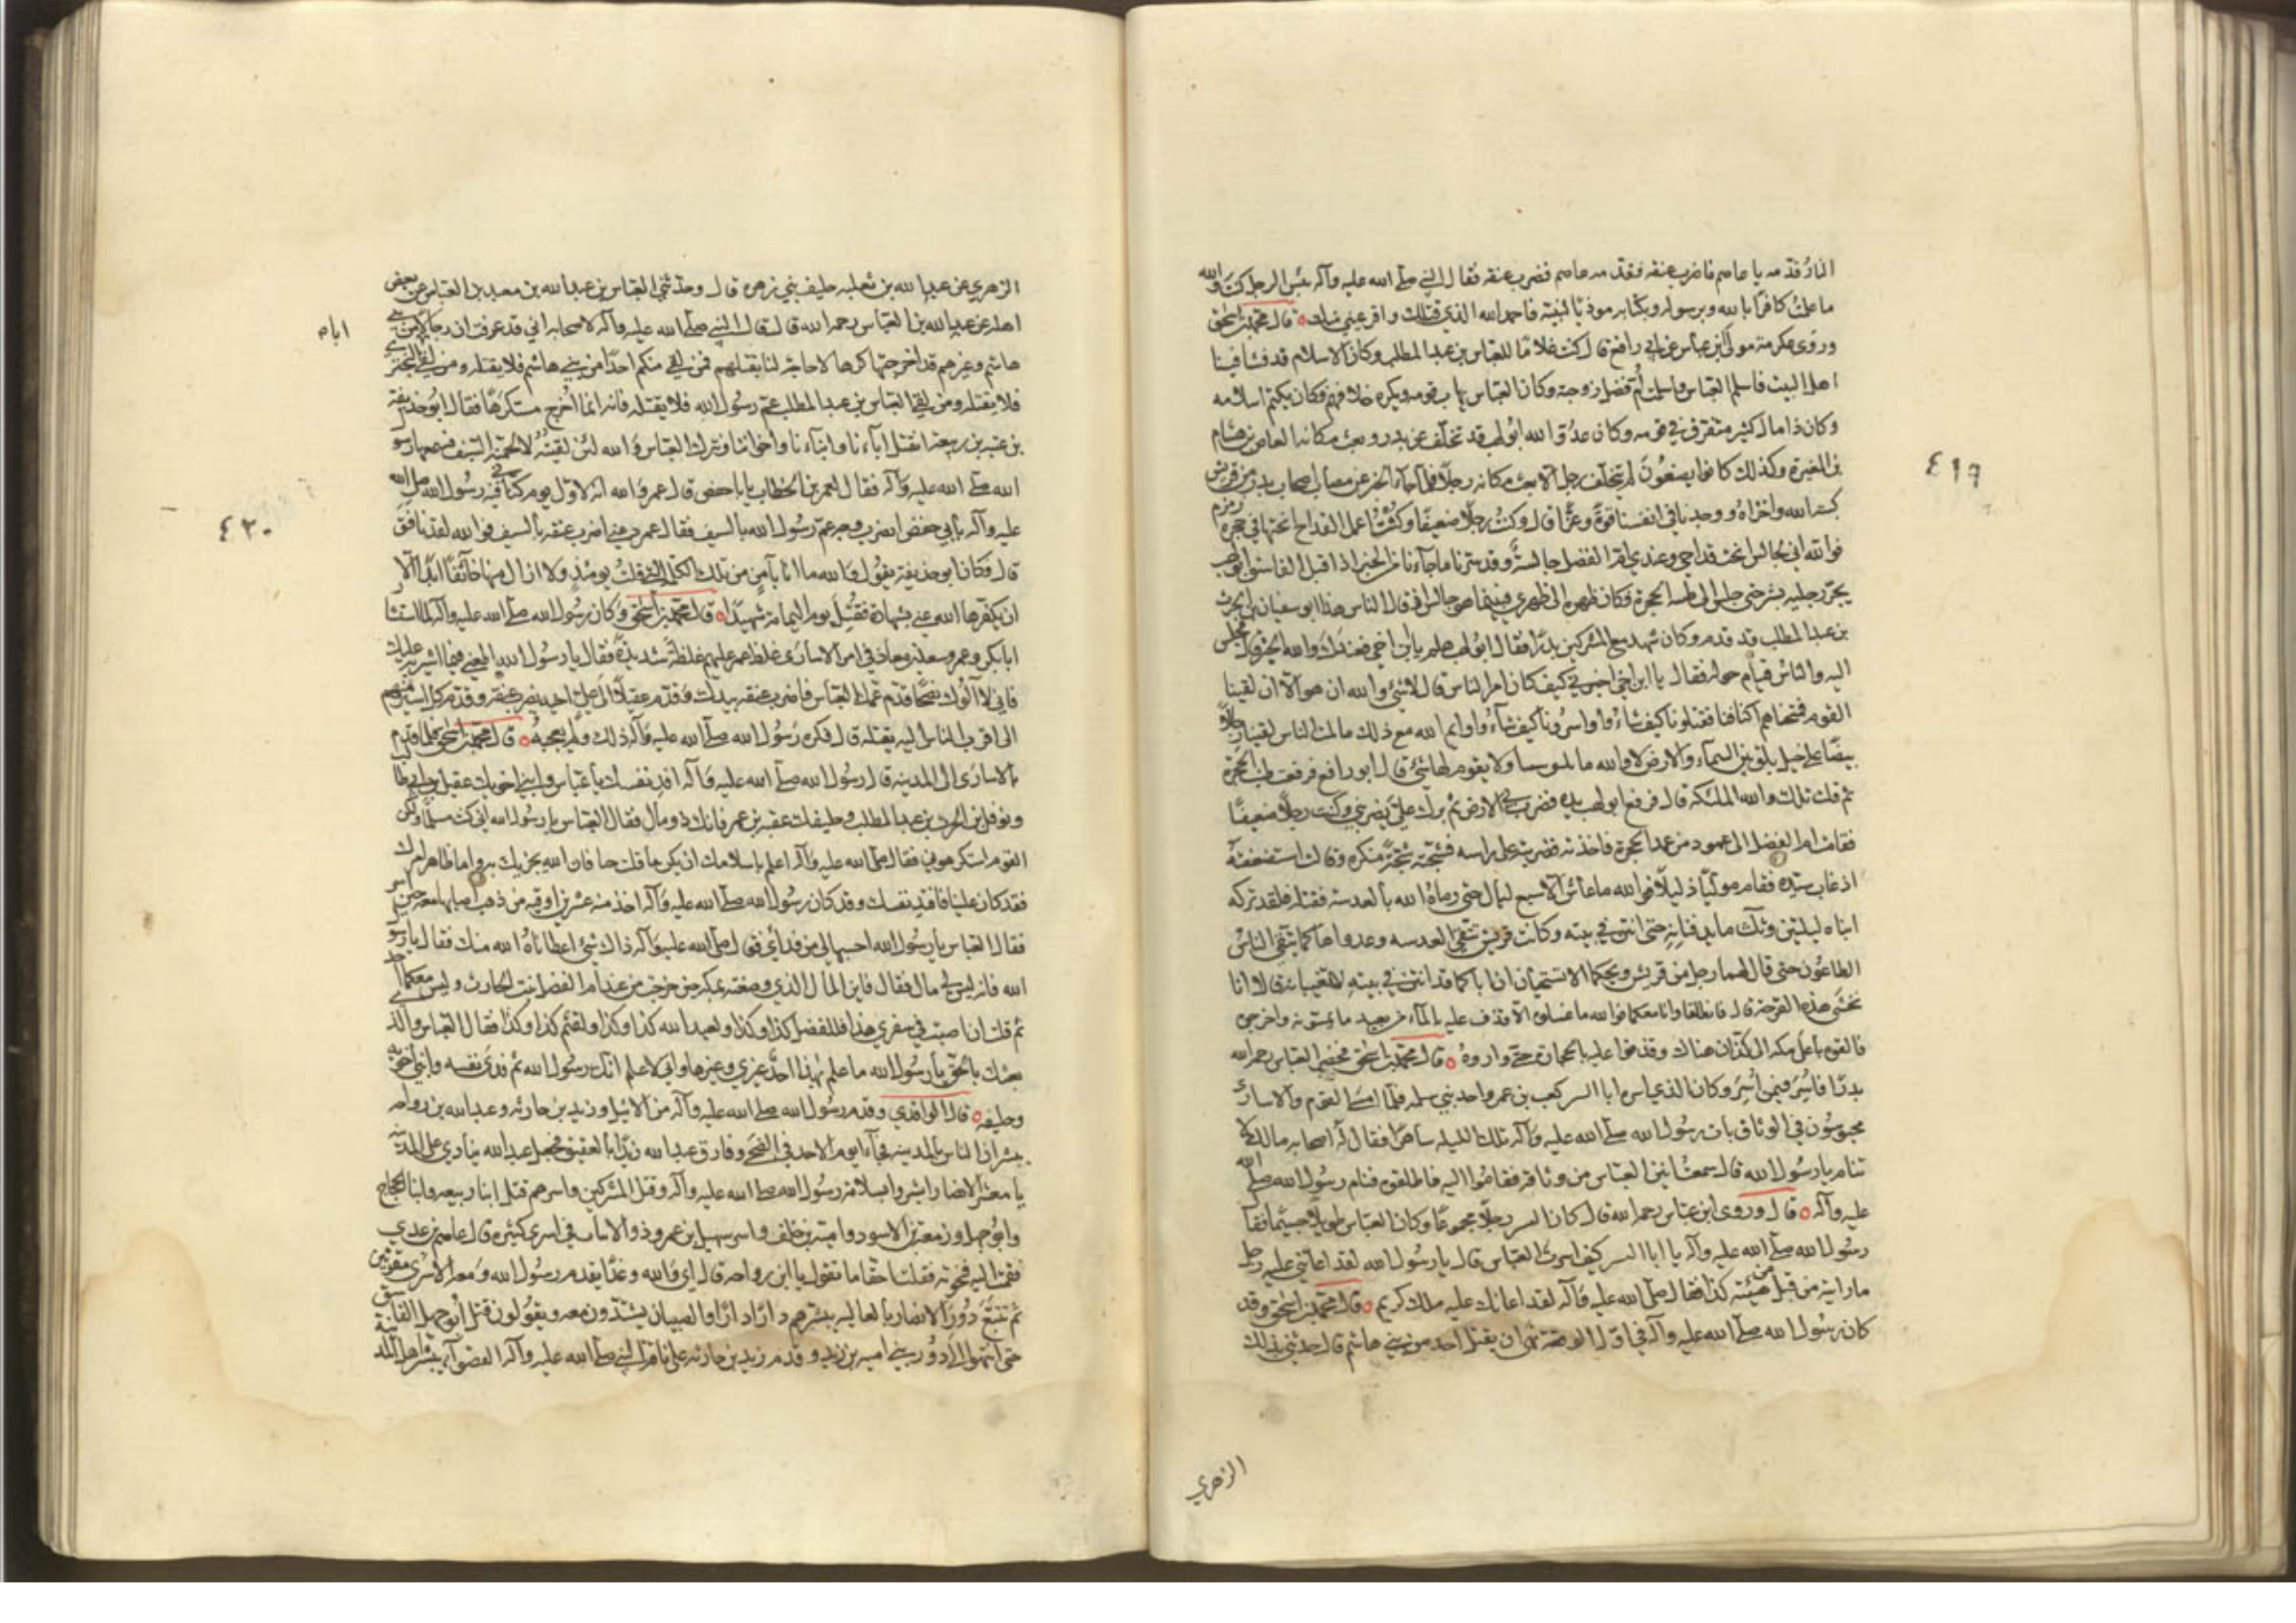 النار قدمه يا عاصم فاضرب عنقه فقدمه عاصم فضرب عنقه فقال النبي صلى الله عليه وآله بئس الرجل كنت والله
ما علمت كافرا بالله وبرسوله وبكتابه موذيا لنبيه فاحمد الله الذي قتلك واقر عيني منك ٥ قال محمد بن اسحق
وروى عكرمة مولى ابن عباس عن ابي رافع قال كنت غلاما للعباس بن عبد المطلب وكان الاسلام قد فشا فينا
اهل البيت فاسلم العباس واسلمت ام الفضل زوجته وكان العباس يهاب قومه ويكره خلافهم فكان يكتم اسلامه
وكان ذا مال كثير متفرق في قومه وكان عدو الله ابو لهب قد تخلف عن بدر وبعث مكانه العاص بن هشام
بن المغيرة وكذلك كانوا يصنعون لم يتخلف رجل الا بعث مكانه رجلا فلما جاء الخبر عن مصاب اصحاب بدر من قريش
كبته الله واخزاه ووجدنا في انفسنا قوة وعزا قال وكنت رجلا ضعيفا وكنت اعمل القداح انحتها في حجرة زمزم
فوالله اني لجالس انحت قداحي وعندي ام الفضل جالسة وقد سرنا ما جاءنا من الخبر اذا اقبل الفاسق ابو لهب
يجر رجليه بشر حتى جلس الى طنب الحجرة وكان ظهره الى ظهري فبينما هو جالس اذ قال الناس هذا ابو سفيان بن الحرث
بن عبد المطلب قد قدم وكان شهد مع المشركين بدرا فقال ابو لهب هلم يا ابن اخي فعندك والله الخبر قال فجلس
اليه والناس قيام حوله فقال يا ابن اخي اخبرني كيف كان امر الناس قال لا شيء والله ان هو الا ان لقينا
القوم فمنحناهم اكتافنا فقتلونا كيف شاءوا واسرونا كيف شاءوا وايم الله مع ذلك ما لمت الناس لقينا رجالا
بيضا على خيل بلق بين السماء والارض لا والله ما يقوم لها شيء قال ابو رافع فرفعت طنب الحجرة
ثم قلت تلك والله الملئكة قال فرفع ابو لهب يده فضرب الارض ثم برك علي يضربني وكنت رجلا ضعيفا
فقامت ام الفضل الى عمود من عمد الحجرة فاخذته فضربته على راسه فشجته شجة منكرة وقالت استضعفته
اذ غاب سيده فقام موليا ذليلا فوالله ما عاش الا سبع ليال حتى رماه الله بالعدسة فقتله فلقد تركه
ابناه ليلتين وثلثا ما يدفنانه حتى انتن في بيته وكانت قريش تتقي العدسه وعدواها كما يتقي الناس
الطاعون حتى قال لهما رجل من قريش ويحكما الا تستحيان ان اباكما قد انتن في بيته لا تغيبانه قالا انا
نخشى هذه القرحة قال فانطلقا وانا معكما فوالله ما غسلوه الا قذفا عليه بالماء من بعيد ما يمسونه واخرجوه
فالقوه باعلى مكه الى كذان هناك وقذفوا عليه بالحجارة حتى واروه ٥ قال محمد بن اسحق فحضر العباس رحمه الله
بدرا فاسر فيمن اسر وكان الذي اسره ابا اليسر كعب بن عمرو احد بني سلمه فلما امسى القوم والاسارى
محبوسون في الوثاق بات رسول الله صلى الله عليه وآله تلك الليله ساهرا فقال له اصحابه مالك لا
تنام يا رسول الله قال سمعت انين العباس من وثاقه فقاموا اليه فاطلقوه فنام رسول الله صلى الله
عليه وآله ٥ قال وروى ابن عباس رحمه الله قال كان ابو اليسر رجلا مجموعا وكان العباس طويلا جسيما فقال
رسول الله صلى الله عليه وآله يا ابا اليسر كيف اسرت العباس قال يا رسول الله لقد اعانني عليه رجل
ما رايته من قبل هيئته كذا فقال صلى الله عليه وآله لقد اعانك عليه ملك كريم ٥ قال محمد بن اسحق وقد
كان رسول الله صلى الله عليه وآله في اول الوقعة نهى ان يقتل احد من بني هاشم قال حدثني بذلك
الزهري
٤١٩
الزهري عن عبد الله بن ثعلبه حليف بني زهرة قال وحدثني العباس بن عبد الله بن معبد بن العباس عن بعض
اهله عن عبد الله بن العباس رحمه الله قال قال النبي صلى الله عليه وآله لاصحابه اني قد عرفت ان رجالا من بني
هاشم وغيرهم قد اخرجوا كرها لا حاجة لنا بقتلهم فمن لقي منكم احدا من بني هاشم فلا يقتله ومن لقي ابا البختري
فلا يقتله ومن لقي العباس بن عبد المطلب عم رسول الله فلا يقتله فانه انما اخرج مستكرها فقال ابو حذيفة
بن عتبه بن ربيعة انقتل اباءنا وابناءنا واخواننا ونترك العباس والله لئن لقيته لالحمنه السيف فسمعها رسول
الله صلى الله عليه وآله فقال لعمر بن الخطاب يا ابا حفص قال عمر والله انه لاول يوم كناني فيه رسول الله صلى الله
عليه وآله بابي حفص ايضرب وجه عم رسول الله بالسيف فقال عمر دعني اضرب عنقه بالسيف فوالله لقد نافق
قال فكان ابو حذيفة يقول والله ما انا بآمن من تلك الكلمة التي قلت يومئذ ولا ازال منها خائفا ابدا الا
ان يكفرها الله عني بشهادة فقتل يوم اليمامة شهيدا ٥ قال محمد بن اسحق وكان رسول الله صلى الله عليه وآله لما استشار
ابا بكر وعمر وسعد بن معاذ في امر الاسارى غلظ عمر عليهم غلظة شديدة فقال يا رسول الله اطعني فيما اشير به عليك
فاني لا آلوك نصحا قدم عمك العباس فاضرب عنقه بيدك وقدم عقيلا الى علي اخيه يضرب عنقه وقدم كل اسير منهم
الى اقرب الناس اليه يقتله قال فكره رسول الله صلى الله عليه وآله ذلك ولم يعجبه ٥ قال محمد بن اسحق فلما قدم
بالاسارى الى المدينه قال رسول الله صلى الله عليه وآله افد نفسك يا عباس وابني اخويك عقيل بن ابي طالب
ونوفل بن الحرث بن عبد المطلب وحليفك عقبه بن عمرو فانك ذو مال فقال العباس يا رسول الله اني كنت مسلما ولكن
القوم استكرهوني فقال صلى الله عليه وآله اعلم باسلامك ان يكن ما قلت حقا فان الله يجزيك به واما ظاهر امرك
فقد كان علينا فافتد نفسك وقد كان رسول الله صلى الله عليه وآله اخذ منه عشرين اوقيه من ذهب اصابها معه حين اسر
فقال العباس يا رسول الله احسبها لي من فدائي فقال صلى الله عليه وآله ذاك شيء اعطاناه الله منك فقال يا رسول
الله فانه ليس لي مال فقال فاين المال الذي وضعته بمكه حين خرجت من عند ام الفضل بنت الحارث وليس معكما احد
ثم قلت ان اصبت في سفري هذا فللفضل كذا وكذا ولعبد الله كذا وكذا ولقثم كذا وكذا فقال العباس والذي
بعثك بالحق يا رسول الله ما علم بهذا احد غيري وغيرها واني لاعلم انك رسول الله ثم فدى نفسه وابني اخويه
وحليفه ٥ قال الواقدي وقدم رسول الله صلى الله عليه وآله من الاثيل زيد بن حارثه وعبد الله بن رواحه
يبشران الناس بالمدينه فجاءا يوم الاحد في الضحى وفارق عبد الله زيدا بالعقيق فجعل عبد الله ينادي على المدينه
يا معشر الانصار ابشروا بسلامة رسول الله صلى الله عليه وآله وقتل المشركين واسرهم قتل ابنا ربيعه وابنا الحجاج
وابو جهل وزمعة بن الاسود وامية بن خلف واسر سهيل بن عمرو ذو الانياب في اسرى كثيره قال عاصم بن عدي
فقمت اليه فنحوته فقلت احقا ما تقول يا ابن رواحه قال اي والله وغدا يقدم رسول الله ومعه الاسرى مقرنين
ثم تتبع دور الانصار بالعاليه يبشرهم دارا دارا والصبيان يشتدون معه ويقولون قتل ابو جهل الفاسق
حتى انتهوا الى دور بني اميه بن زيد وقدم زيد بن حارثه على ناقة النبي صلى الله عليه وآله القصواء يبشر اهل المدينة
اباه
٤٢٠